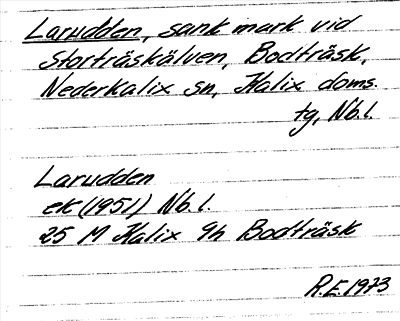 Larudden, sank mark vid
Storträskälven, Bodträsk,
Nederkalix sn, Kalix doms.
tg, Nb.l.
Larudden
ek (1951) Nb.l.
25 M Kalix 9h Bodträsk
R.E. 1973